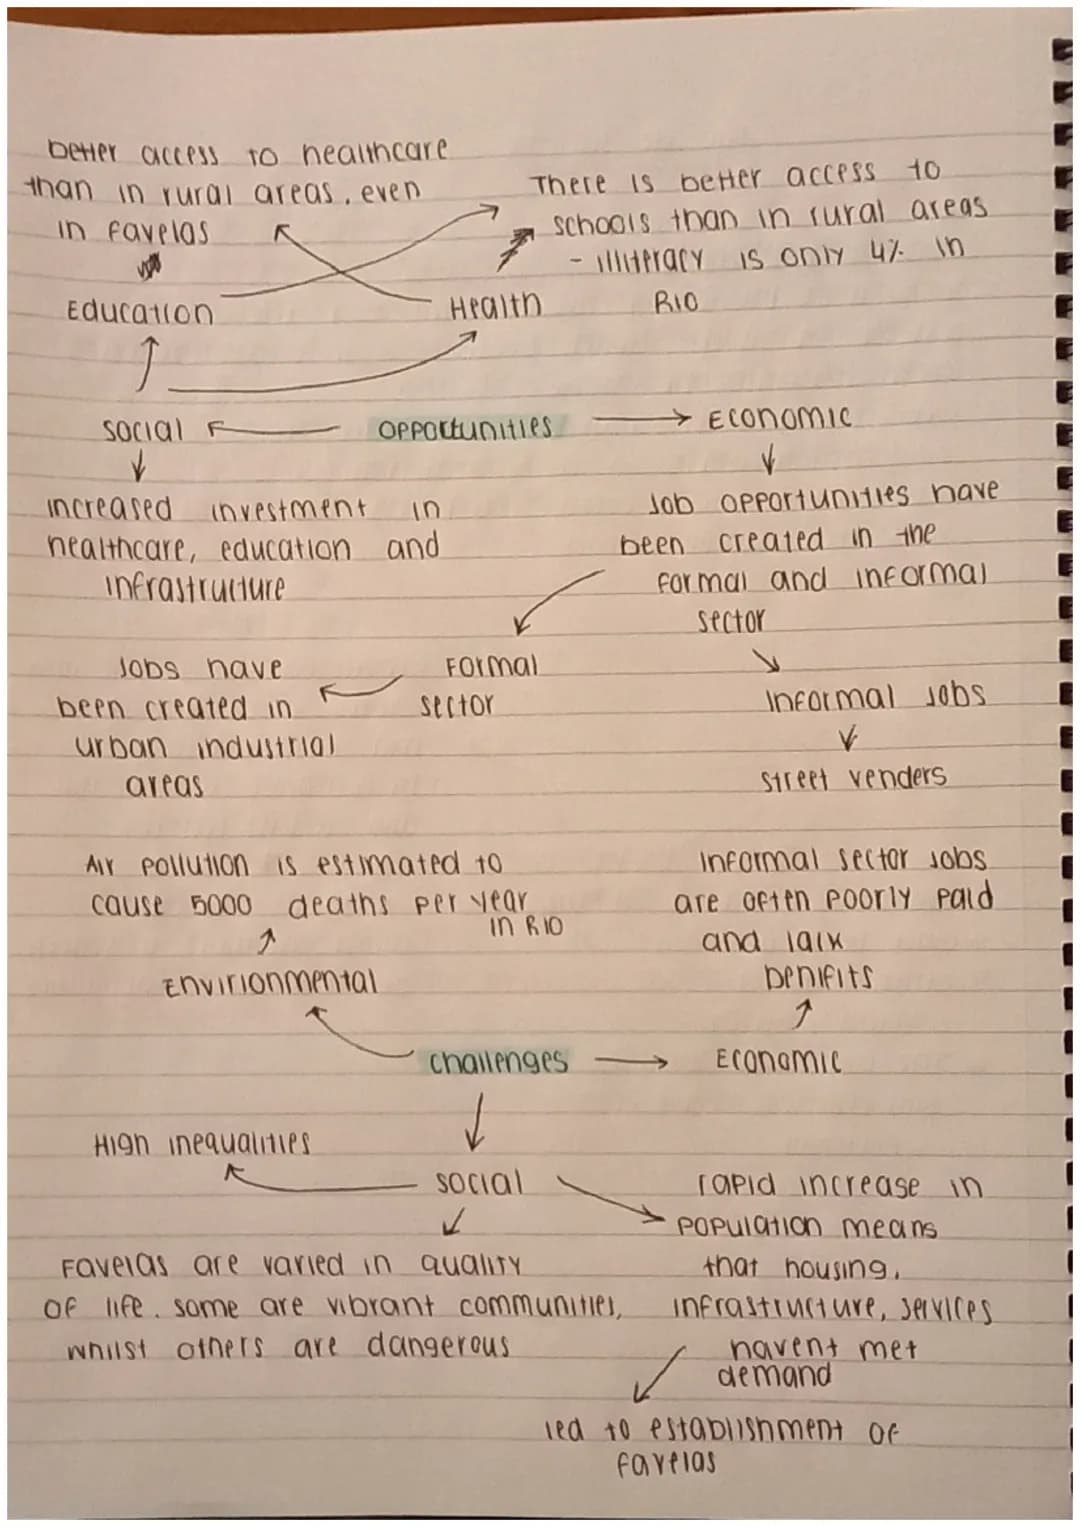 better access to healthcare
than in rural areas, even
in favelas
There is better access to
schools than in rural areas
- illiteracy is only 4% in
Rio
Education
Health
social
opportunities
Economic
increased investment in
healthcare, education and
infrastructure
Job opportunities have
been created in the
formal and informal
sector
Jobs have
been created in
urban industrial
areas
Formal
sector
Informal Jobs
street venders
Air pollution is estimated to
cause 5000 deaths per year
in Rio
Envirionmental
Informal sector jobs
are often poorly paid
and lack
benifits
challenges
Economic
High inequalities
social
rapid increase in
population means
that housing,
infrastructure, services
havent met
demand
Favelas are varied in quality
of life. some are vibrant communities,
whilst others are dangerous
led to establishment of
favelas